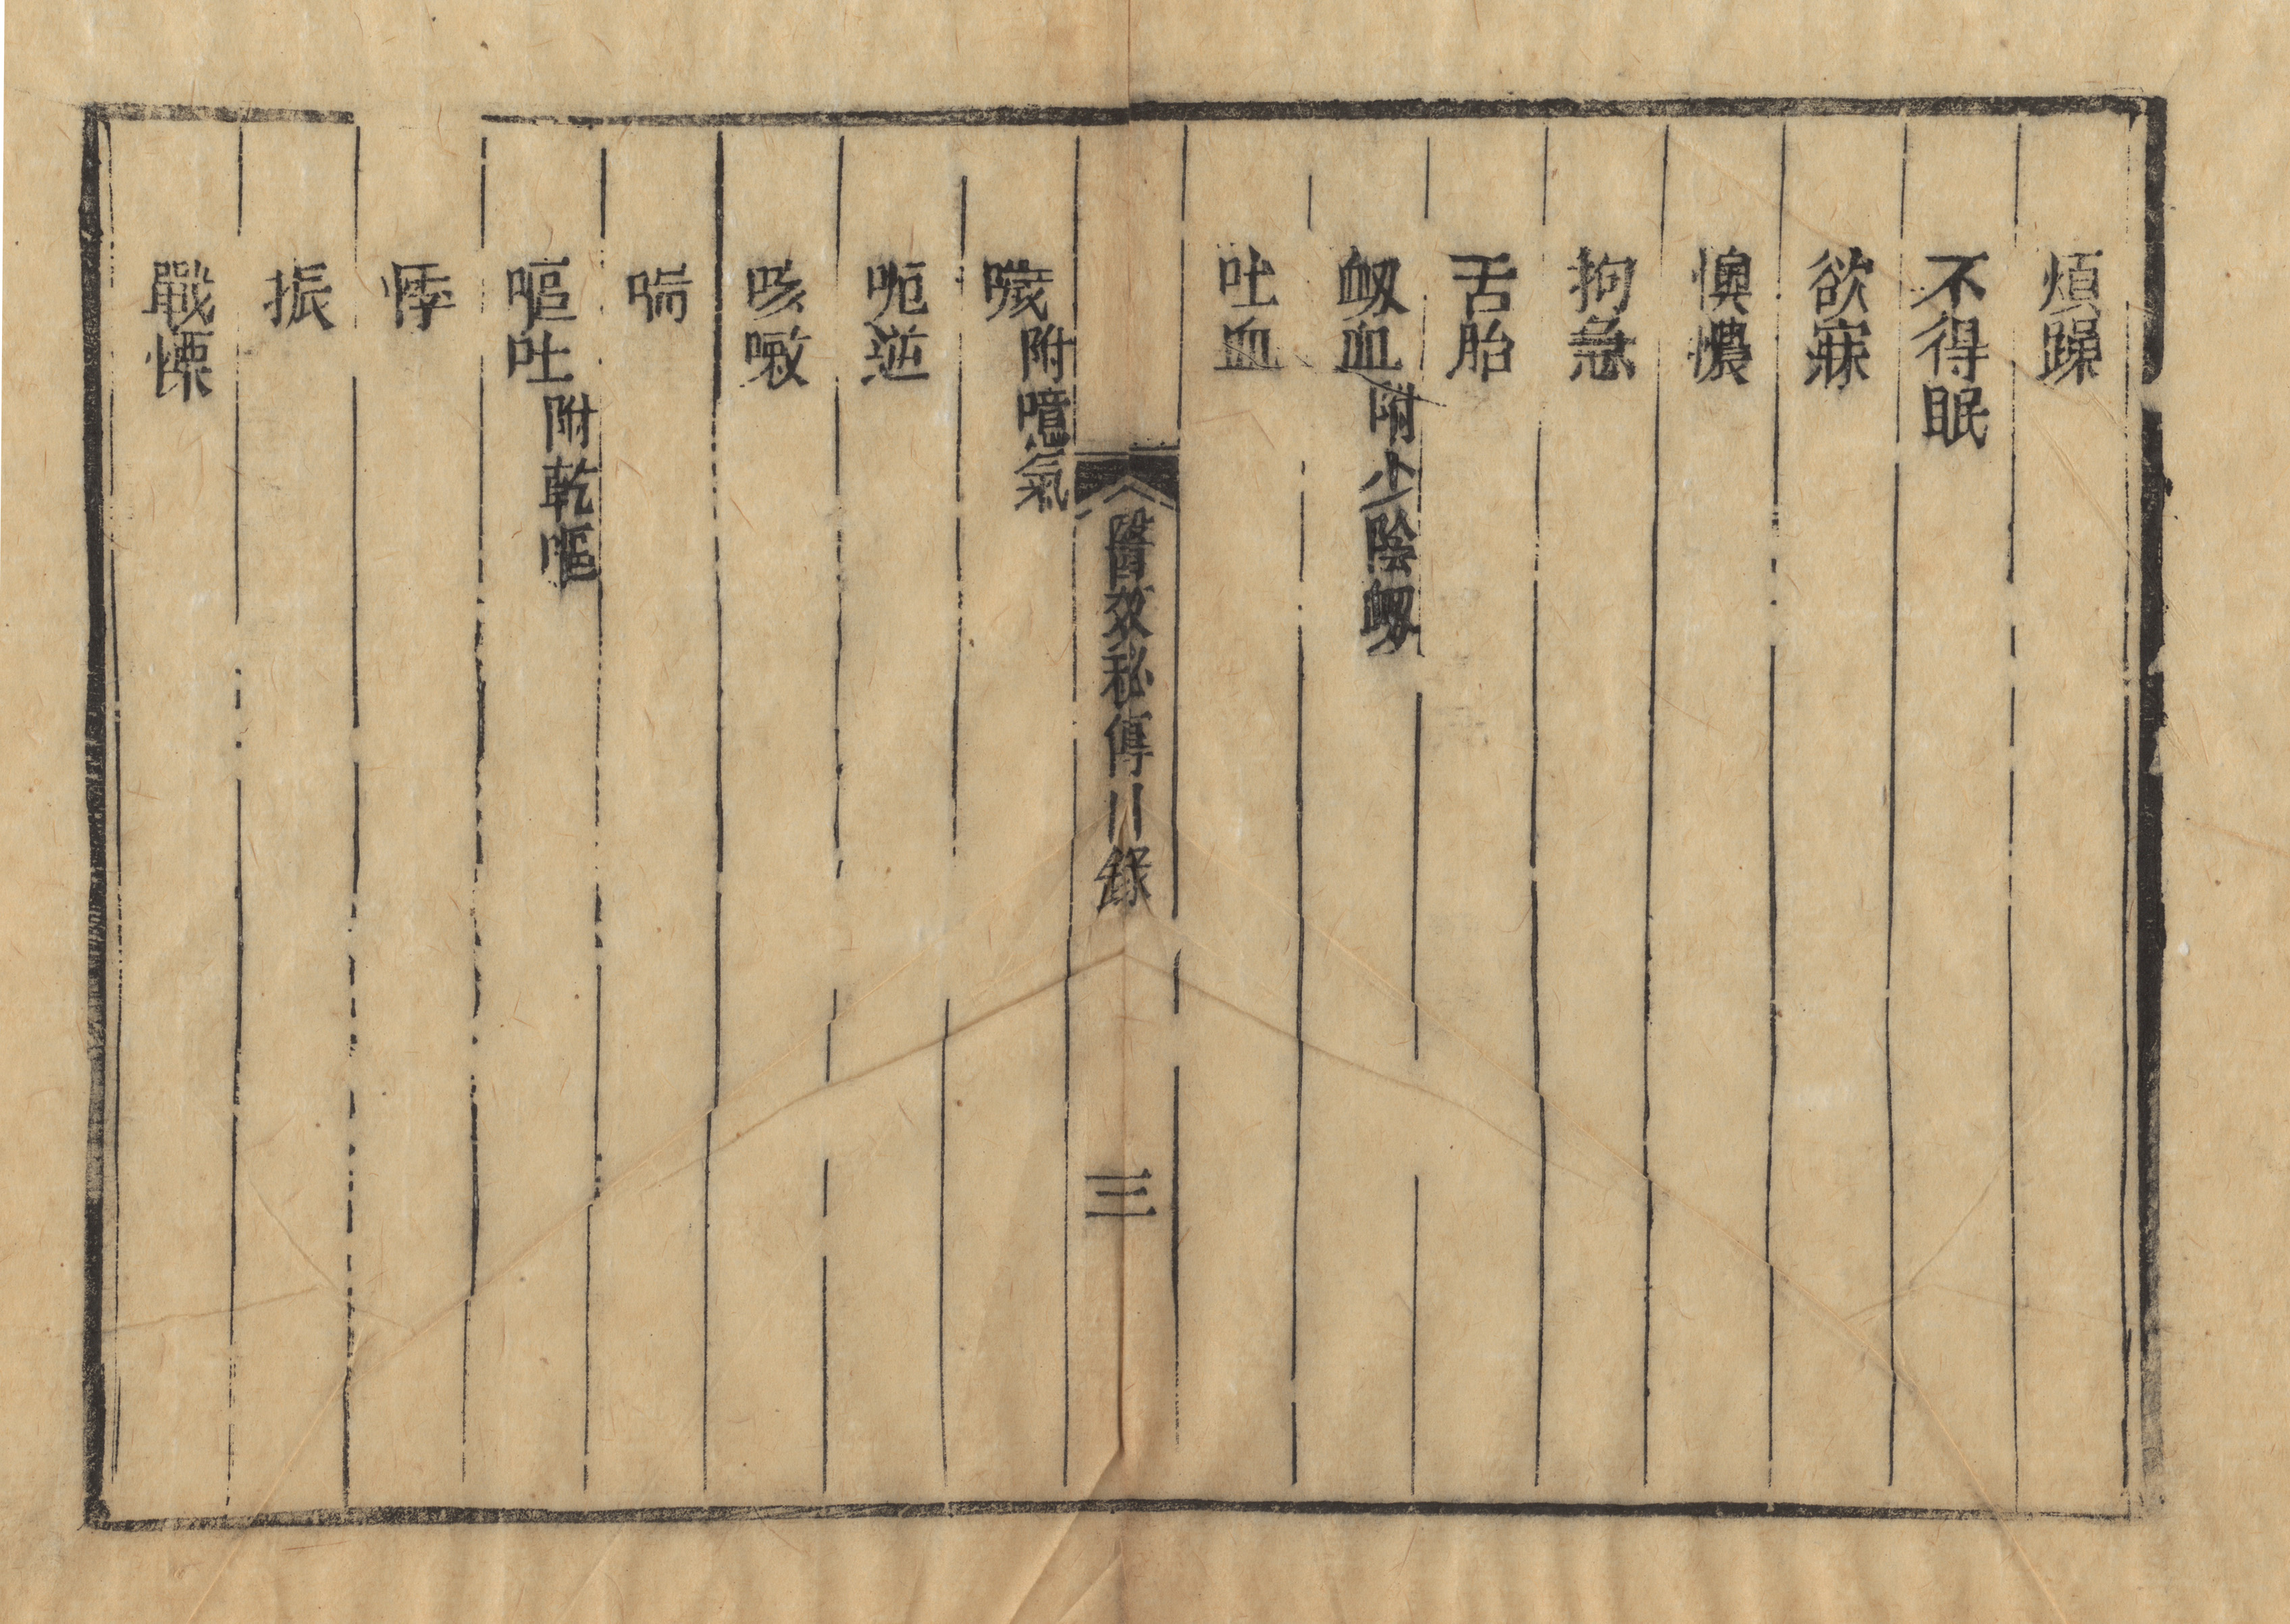 煩躁
不得眠
欲寐
懊憹
拘急
舌胎
衂血附少陰衂
吐血
醫效秘傳目錄
三
噦附噫氣
呃逆
咳嗽
喘
嘔吐附乾嘔
悸
振
戰慄